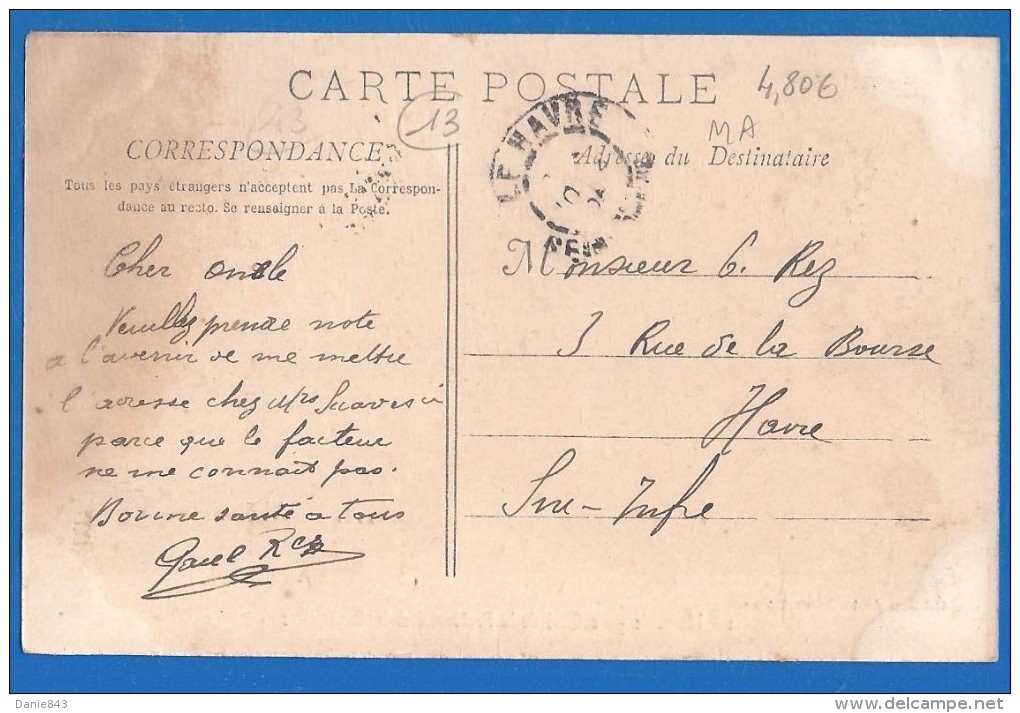 CARTE POSTALE
4,806
13
13
MA
CORRESPONDANCE
Adresse du Destinataire
Tous les pays etrangers n'acceptent pas La Correspon-
dance au recto. Se renseigner à la Poste.
LE HAVRE
Cher oncle
Veuillez prendre note
a l'avenir de me mettre
l'adresse chez
parce que le facteur
ne me connait pas.
Bonne santé a tous
Rez
Monsieur G. Rez
3 Rue de la Bourse
Havre
Sne-Infre
Danie843
www.delcampe.net